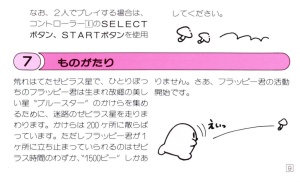 なお、2人でプレイする場合は、
コントローラー1のSELECT
ボタン、STARTボタンを使用
してください。
7 ものがたり
荒れはてたゼビラス星で、ひとりぼっ
ちのフラッピー君は生まれ故郷の美し
い星“ブルースター”のかけらを集め
るために、迷路のゼビラス星を走りま
わります。かけらは200ヶ所に散らば
っています。ただしフラッピー君が1
ヶ所に立ち止まっていられるのはゼビ
ラス時間のわずか、“1500ビー”しかあ
りません。さあ、フラッピー君の活動
開始です。
えいっ
9